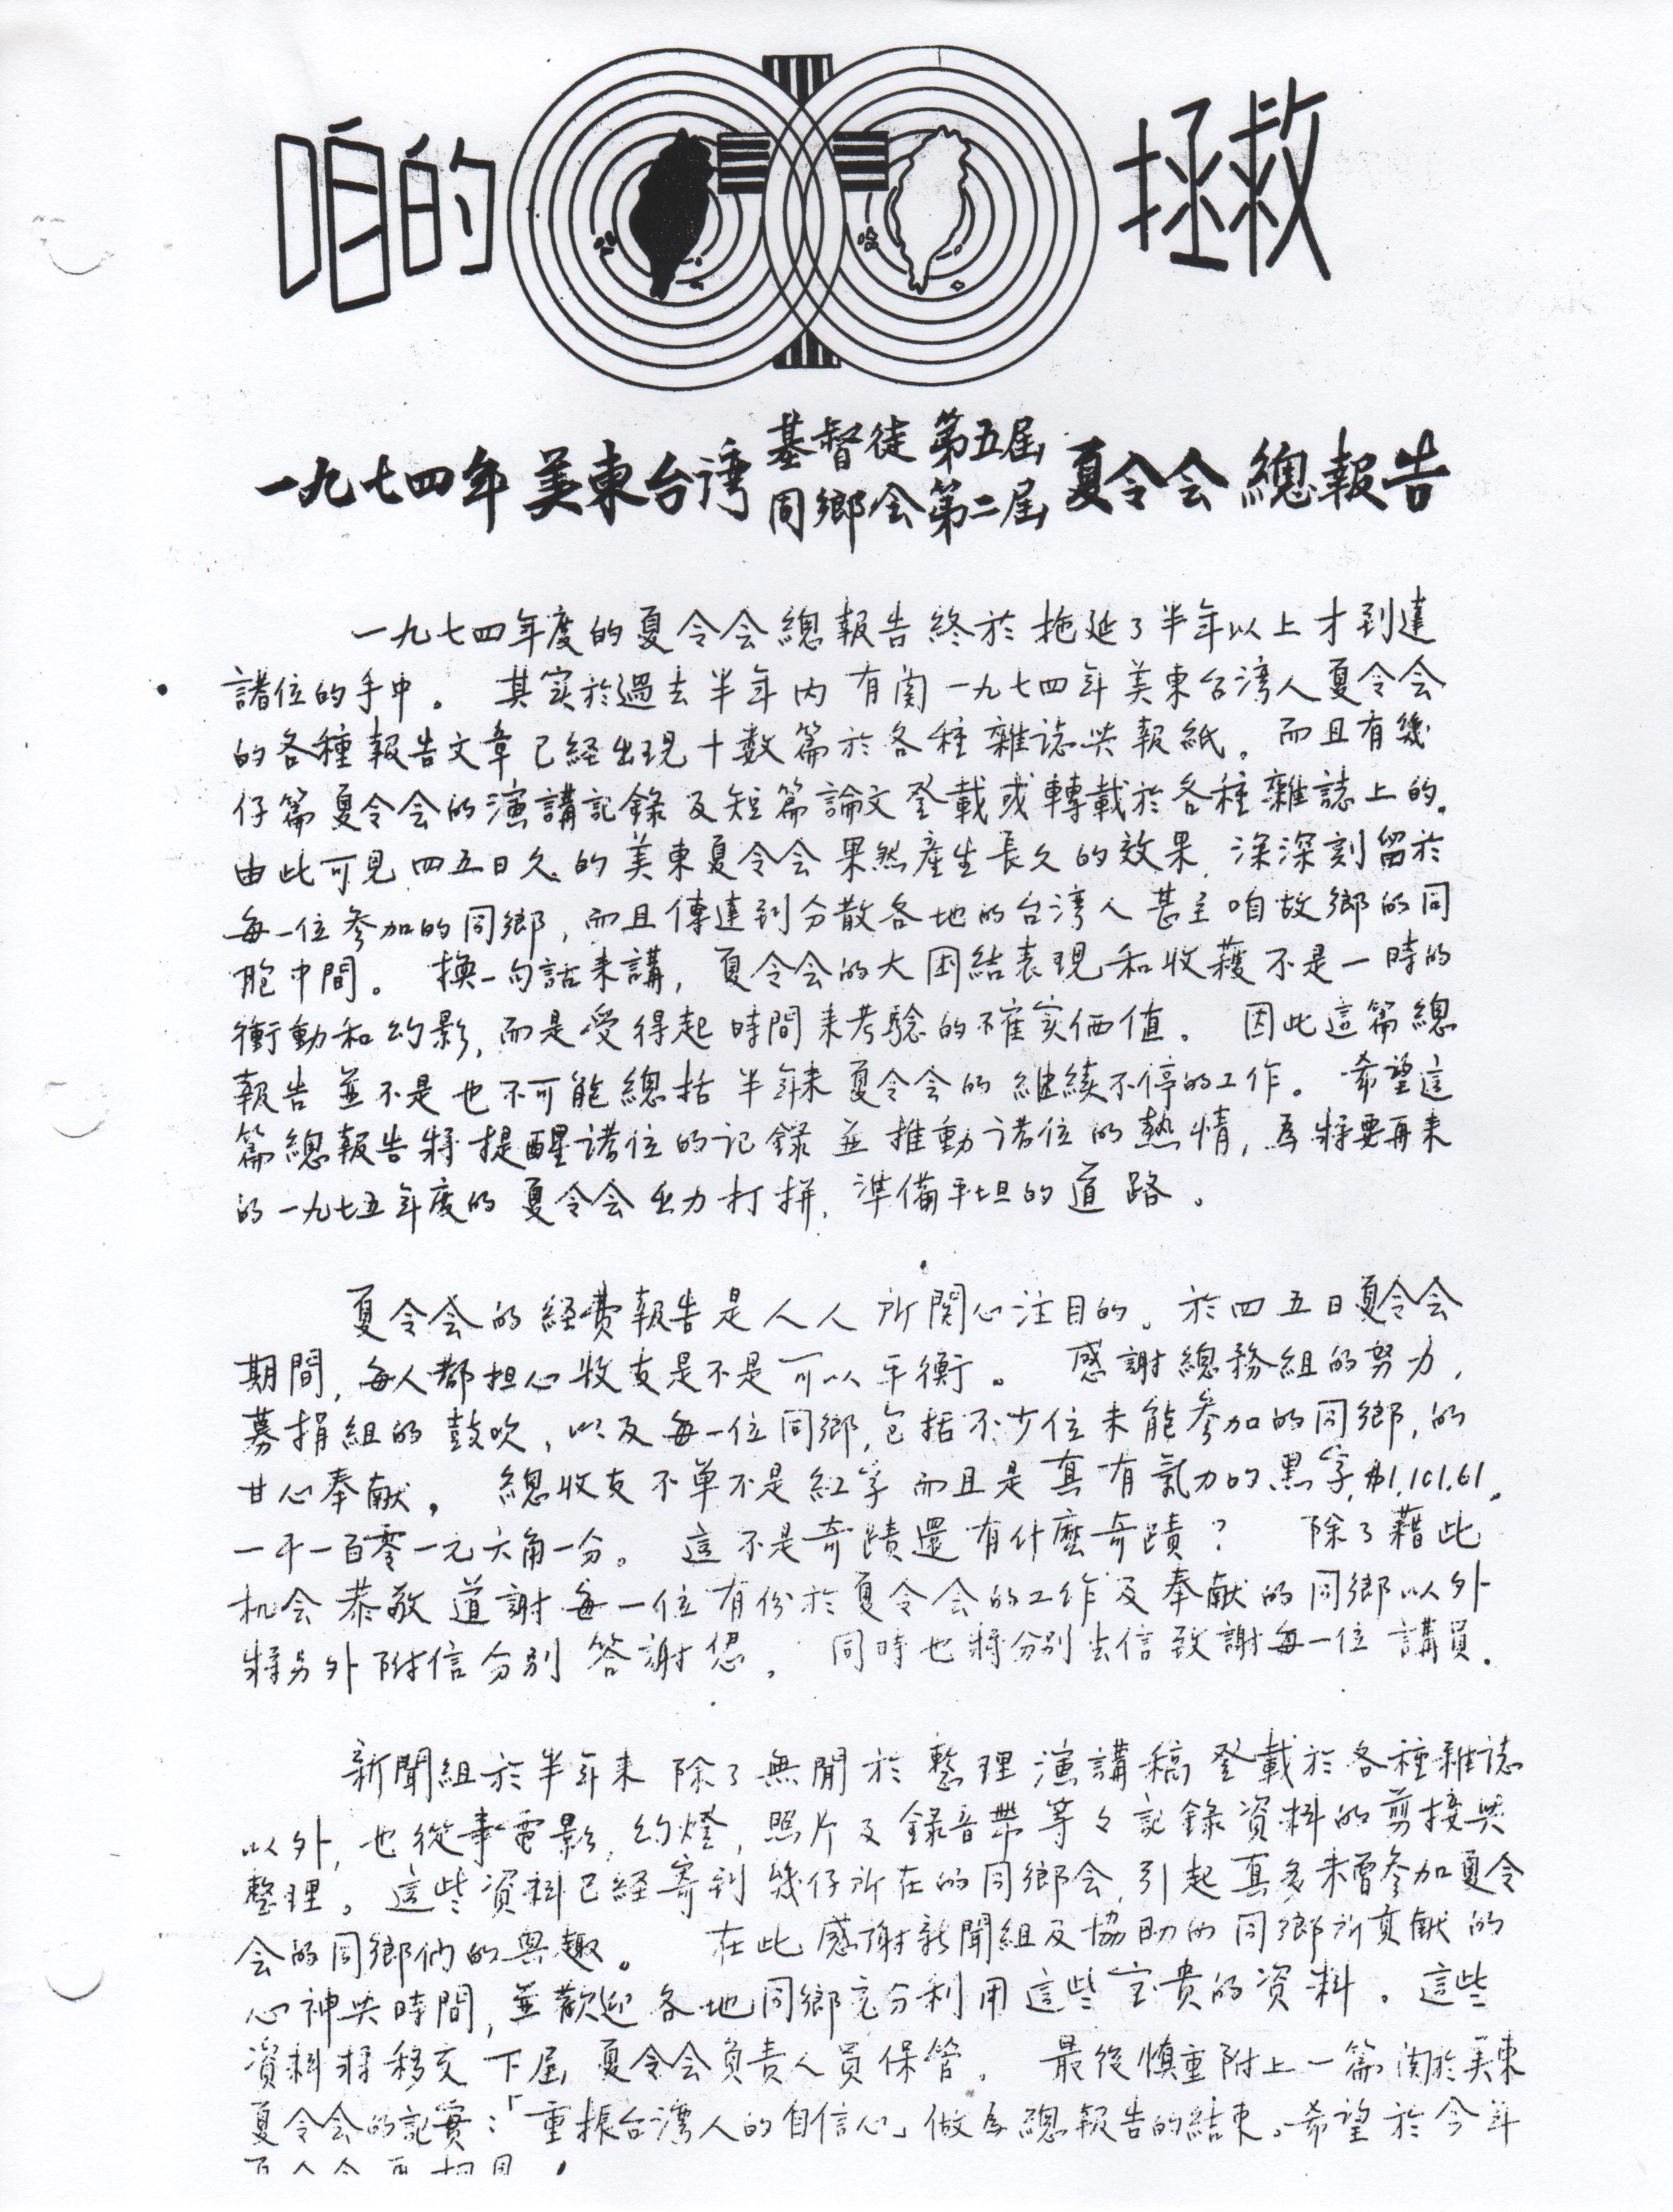 咱的 拯救
一九七四年 美東台湾 基督徒 第五届 同鄉会 第二届 夏令会 總報告
一九七四年度的夏令会總報告終於拖延了半年以上才到達
諸位的手中。 其实於過去半年内有関一九七四年美東台湾人夏令会
的各種報告文章已経出現十数篇於各種雜誌與報紙。而且有幾
仔篇夏令会的演講記錄及短篇論文登載或轉載於各種雜誌上的。
由此可見四五日久的美東夏令会果然產生長久的效果,深深刻留於
每一位參加的同鄉,而且傳達到分散各地的台湾人甚至咱故鄉的同
胞中間。 換一句話來講,夏令会的大团結表現和收穫不是一時的
衝動和幻影,而是受得起時間來考驗的確实価值。 因此這篇總
報告並不是也不可能總括半年來夏令会的継続不停的工作。希望這
篇總報告將提醒诸位的记錄並推動诸位的熱情,為將要再来
的一九七五年度的夏令会出力打拼,準備平坦的道路。
夏令会的経費報告是人人所関心注目的。於四五日夏令会
期間,每人都担心收支是不是可以平衡。 感謝總務組的努力,
募捐組的鼓吹,以及每一位同鄉,包括不少位未能參加的同鄉,的
甘心奉献。 總收支不单不是紅字而且是真有氣力的黑字,$1,101.61。
一千一百零一元六角一分。 這不是奇蹟還有什麼奇蹟? 除了藉此
机会恭敬道謝每一位有份於夏令会的工作及奉献的同鄉以外
將另外附信分別答謝您。 同時也將分别去信致謝每一位講員。
新聞組於半年来除了無閒於整理演講稿登載於各種雜誌
以外,也從事電影,幻燈,照片及錄音帶等々記錄資料的剪接與
整理。這些資料已経寄到幾仔所在的同鄉会,引起真多未曾參加夏令
会的同鄉们的興趣。 在此感謝新聞組及協助的同鄉所貢献的
心神與時間,並歡迎各地同鄉充分利用這些宝贵的资料。這些
資料將移交下屆夏令会負責人員保管。 最後慎重附上一篇関於美東
夏令会的記實:「重振台湾人的自信心」做為總報告的結束。希望於今年